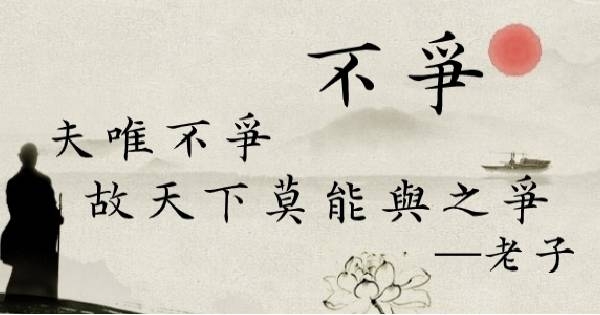 不爭
夫唯不爭
故天下莫能與之爭
—老子